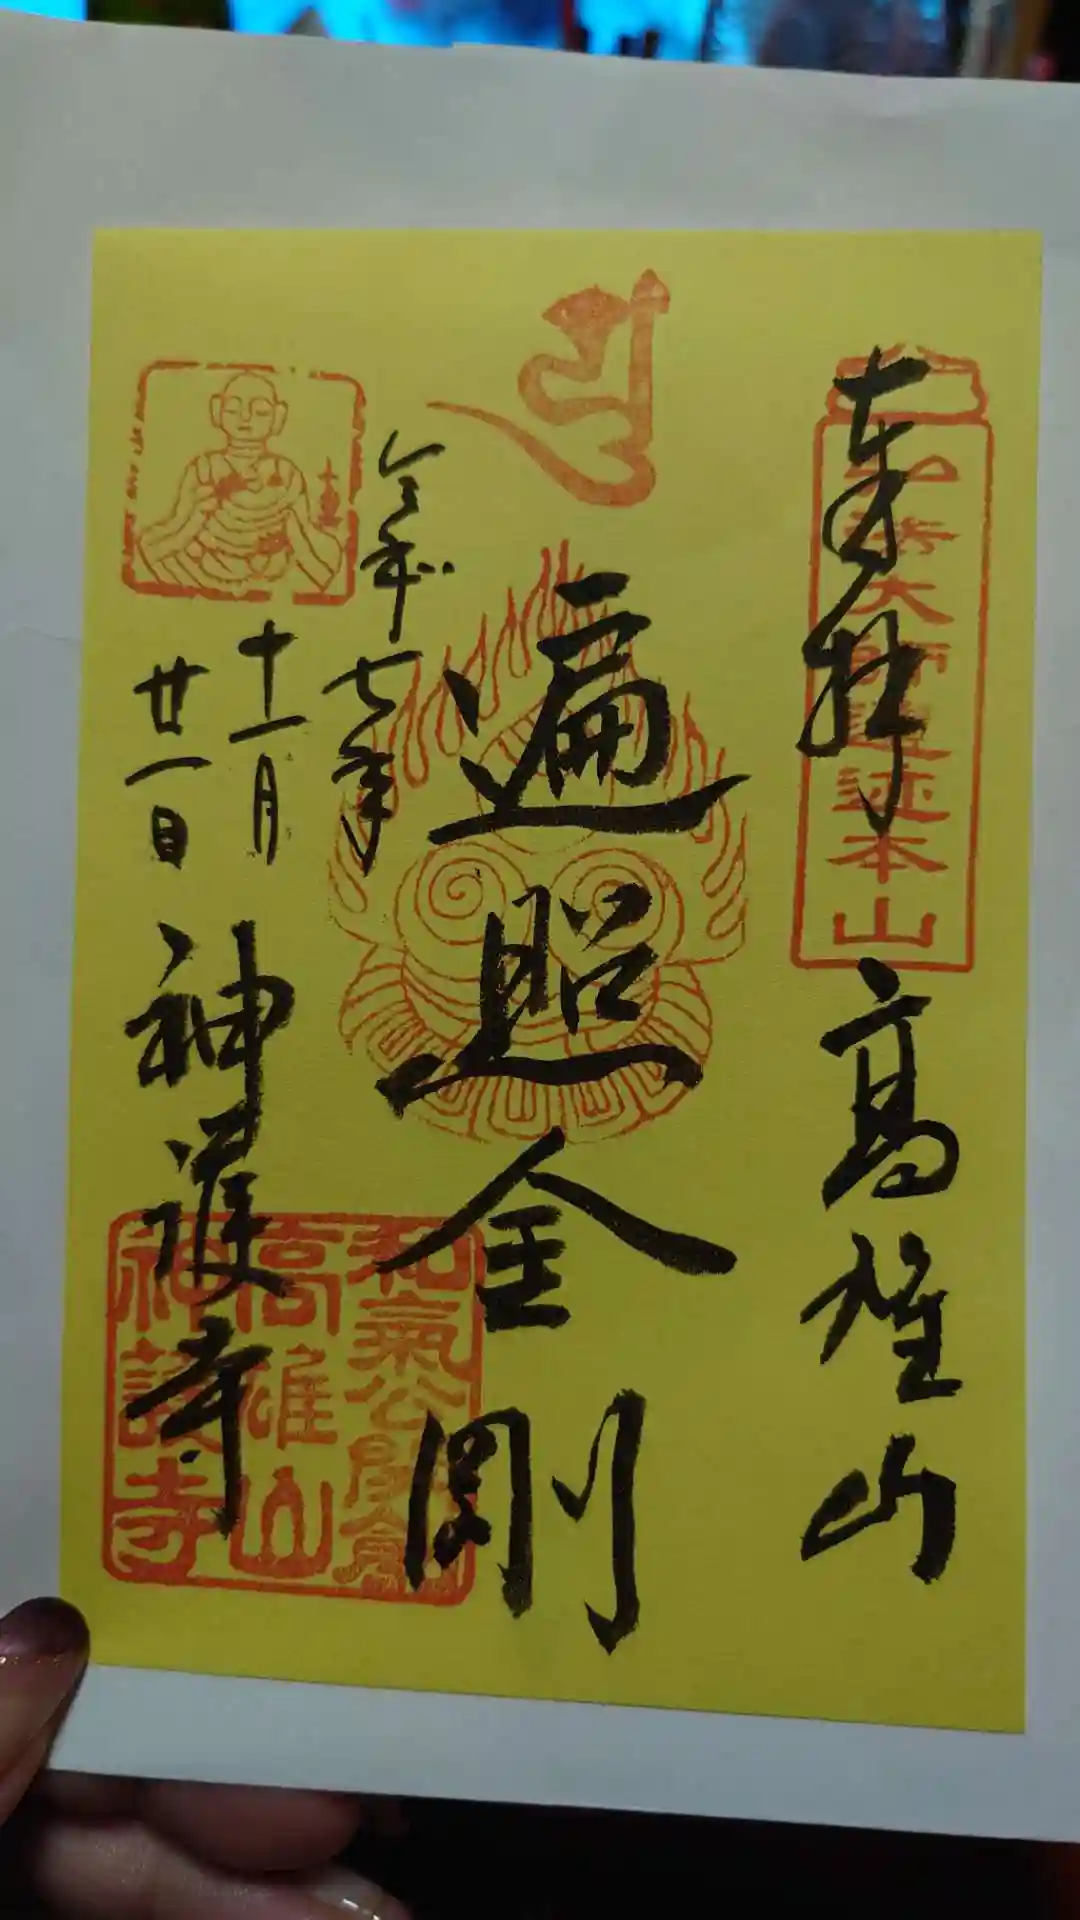 奉拝
高雄山
弘法大師霊迹本山
遍照金剛
令和七年
十一月
廿一日
神護寺
和氣公開創
高雄山
神護寺